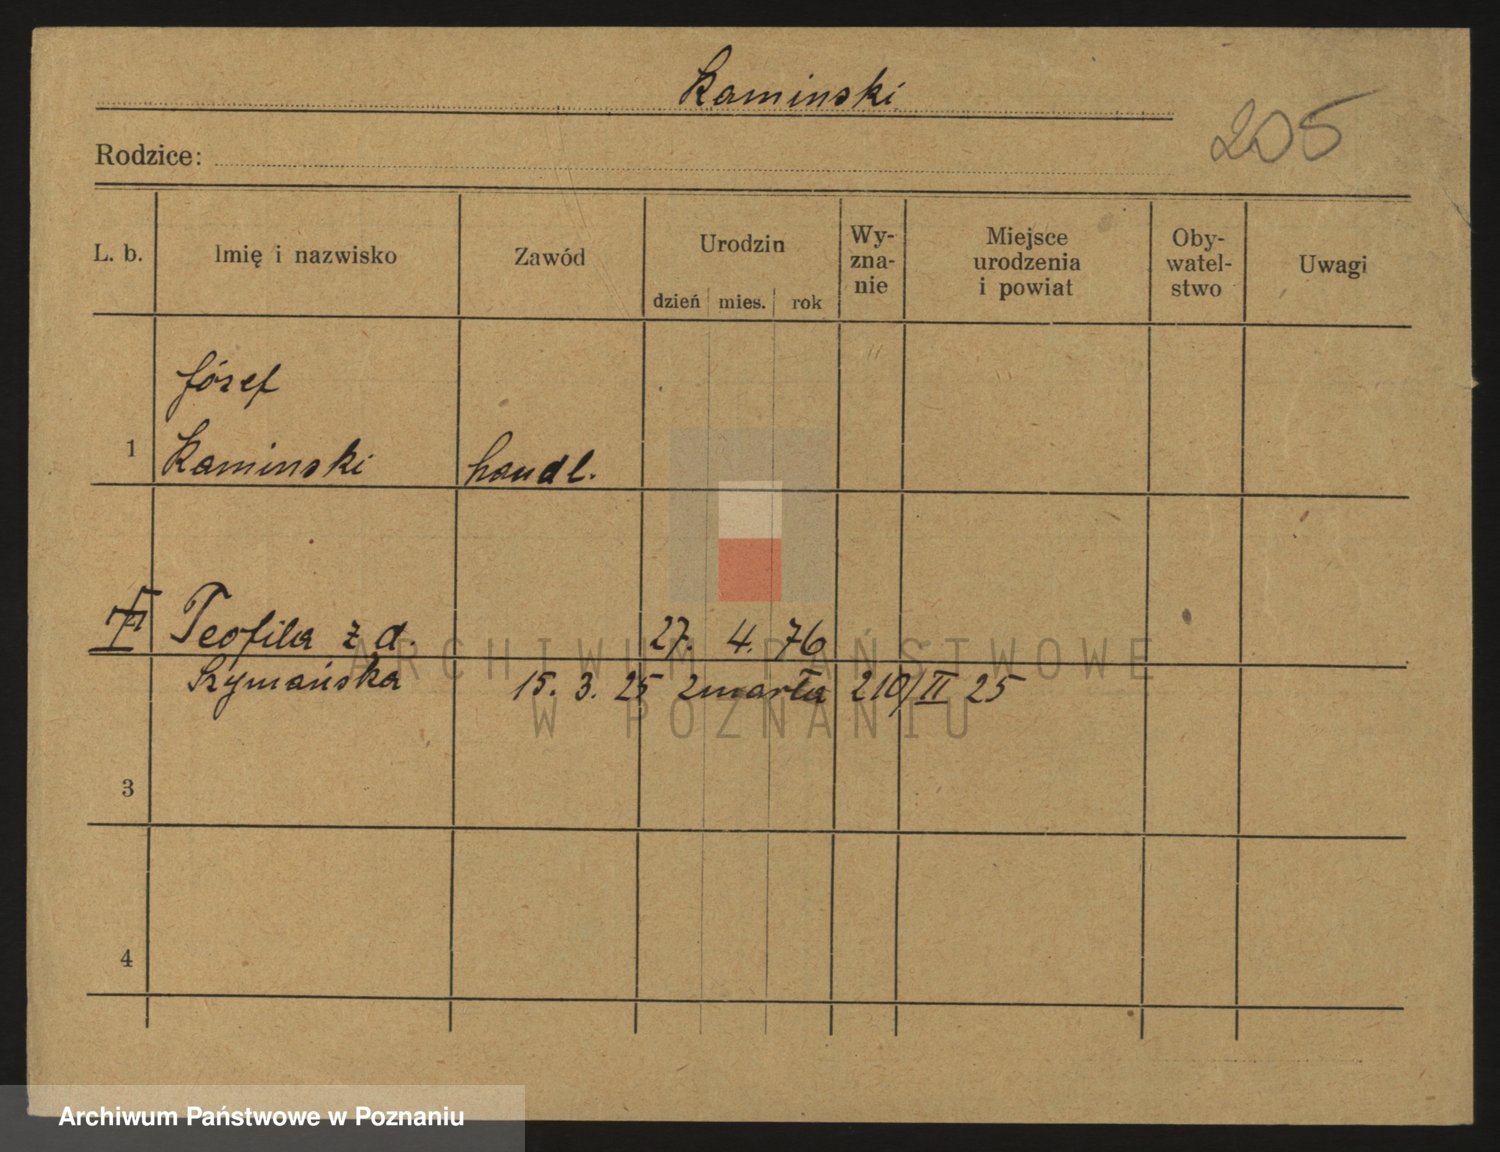 Kaminski
205
Rodzice:
L. b.
Imię i nazwisko
Zawód
Urodzin
dzień mies. rok
Wy-
zna-
nie
Miejsce
urodzenia
i powiat
Oby-
watel-
stwo
Uwagi
Józef
1 Kaminski handl.
Teofila z d. 27. 4. 76
Szymańska 15. 3. 25 zmarła 210/II 25
3
4
ARCHIWUM PAŃSTWOWE
W POZNANIU
Archiwum Państwowe w Poznaniu